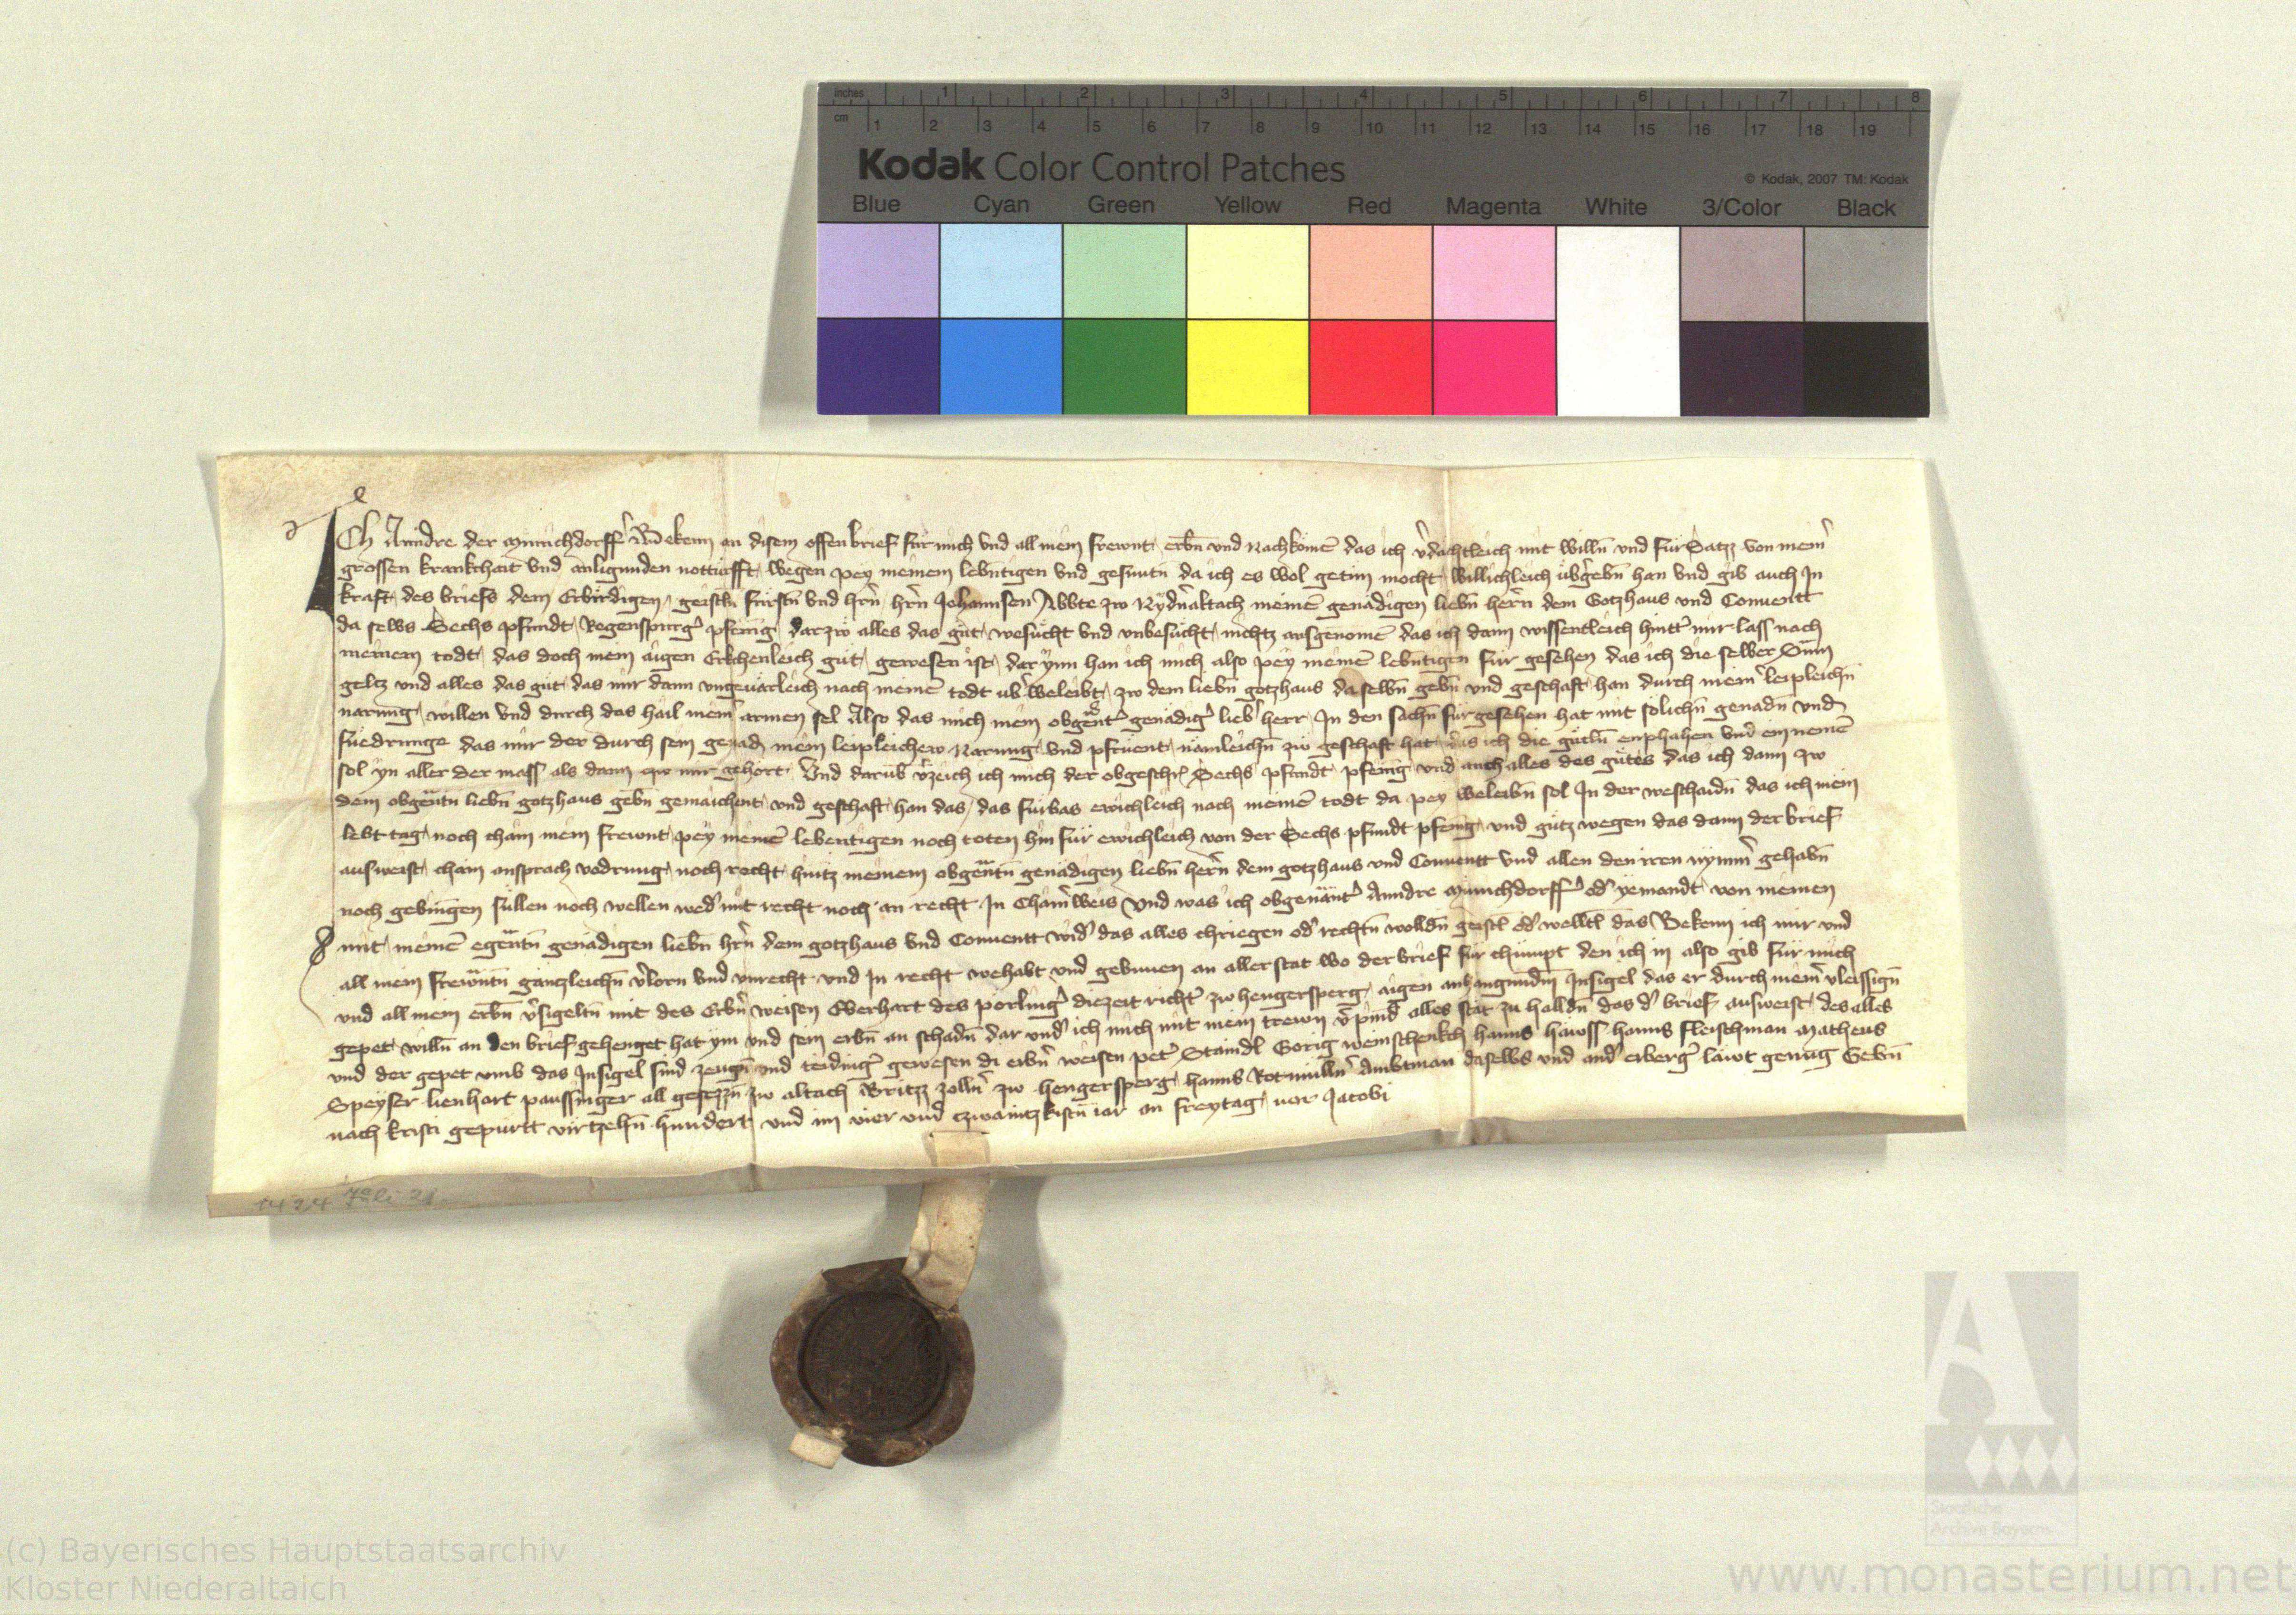 inches 1 2 3 4 5 6 7 8
cm 1 2 3 4 5 6 7 8 9 10 11 12 13 14 15 16 17 18 19
Kodak Color Control Patches
© Kodak, 2007 TM: Kodak
Blue Cyan Green Yellow Red Magenta White 3/Color Black
ICh Anndre der Münichdorff̉ an disem offen brief für mich vnd all mein frewnt erbn̄ vnd Nachkömē das ich v̉dächtleich mit willn̄ vnd für Satz von mein̉
grossen krankchait vnd anligunden notturfft wegen pey meinem lebn̄tigen vnd gesuntn̄ da ich es wol getun mocht willichleich übgebn̄ han vnd gib auch In
kraft des briefs dem Erbirdigen geistln̄ fürstn̄ vnd hrn̄ hrn̄ Johannsen Abbte zw Nydn̉altach meinē genädigen liebn̄ herrn̄ dem Gotzhaus vnd Conuentt
da selbs Sechs pfundt Regenspurg̉ pfenig darzw alles das gut wesücht vnd vnbesücht nichtz ausgenomē das ich dann wissentleich hintt̉ mir lass nach
meinem todt das doch mein aigen gut gewesen ist dar ynn han ich mich also pey meinē lebn̄tigen für gesehen das ich die selber Sum
geltz vnd alles das gut das mir dann vngeuärleich nach meinē todt üb̉ weleibt zw dem liebn̄ gotzhaus da selbn̄ gebn̄ vnd geschaft han durch mein̉ leipleichn̄
narung willen vnd durch das hail mein̉ armen sel Also das mich mein obgen̄t̉ genädig̉ lieb̉ herr In den sachn̄ fürgesehen hat mit solichn̄ genadn̄ vnd
fuedrunge das mir der durch sein genad mein leipleichew Narung vnd pfruent nämleichn̄ zw geschaft hat das ich die enphahen vnd ein nemē
sol yn aller der mass als dann gehört Vnd darüb v̉zeich ich mich der obgeschr̄ Sechs pfundt pfenig vnd auch alles des gutes das ich dann zw
dem obgen̄tn̄ liebn̄ gotzhaus gebn̄ gemaichent vnd geschaft han das das fürbas ewichleich nach meinē todt da pey weleibn̄ sol In der weschaidn̄ das ich mein
lebttag noch chain mein frewnt pey meinē lebentigen noch toten hin für ewichleich von der Sechs pfundt pfenig vnd gutz wegen das dann der brief
ausweist chain ansprach vodrung noch recht hintz meinem obgen̄tn̄ genädigen liebn̄ herrn̄ dem gotzhaus vnd Conuentt vnd allen den iren nymm̉ gehabn̄
noch gebingen süllen noch wellen wed̉ mit recht noch an recht In Chain̉ weis Vnd was ich obgenänt̉ Anndre Münichdorff̉ od̉ yemandt von meinen
mit meinē egen̄tn̄ genädigen liebn̄ hrn̄ dem gotzhaus vnd Conuentt wid̉ das alles chriegen od̉ rechtn̄ wolldn̄ geistl od̉ welltl das Bekenn ich mir vnd
all mein frewntn̄ gänzleichn̄ v̉lorn vnd vnrecht vnd In recht wehabt vnd gebunen an aller stat wo der brief für chümpt den ich in also gib für mich
vnd all mein erbn̄ v̉sigeltn̄ mit des Erbn̉ weisen Eberhart des porling̉ diezeit richt̉ zw hengersperg aigen anhangundm̄ Insigel das er durch mein̉ vleissign̄
gepet willn̄ an den brief gehenget hat ym vnd sein erbn̄ an schadn̄ dar vnd̉ ich mich mit mein trewn v̉pind alles stät zu halldn̄ das d̉ brief ausweist des alles
vnd der gepet vmb das Insigel sind zeugn̄ vnd teiding̉ gewesen di erbn̉ weisen pet̉ Staindl Gorig weinschenkch hanns hawss hanns fleischman Matheus
Speyser lienhart paussinger all gesezzn̄ zw altach Britz zolln̉ zw hengersperg hanns Rotmülln̉ Ambtman daselbs vnd and̉ erberg̉ läwt genüg Gebn̄
nach kristi gepurtt virtzehn̄ hundert vnd im vier vnd czwaintzkistn̄ iar an freytag vor Jacobi
1424 Juli 21.
Staatliche
Archive Bayerns
(c) Bayerisches Hauptstaatsarchiv
Kloster Niederaltaich
www.monasterium.net